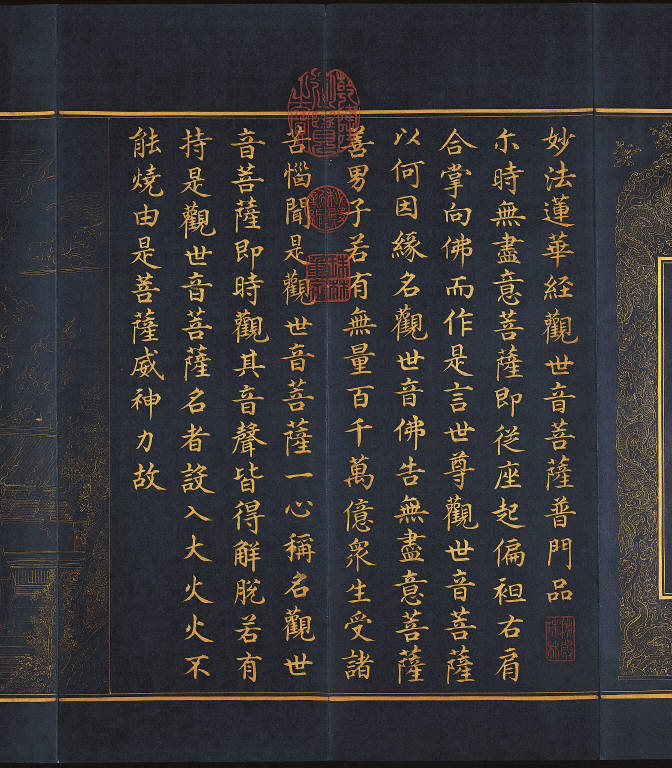 妙法蓮華經觀世音菩薩普門品
尒時無盡意菩薩即從座起偏袒右肩
合掌向佛而作是言世尊觀世音菩薩
以何因緣名觀世音佛告無盡意菩薩
善男子若有無量百千萬億衆生受諸
苦惱聞是觀世音菩薩一心稱名觀世
音菩薩即時觀其音聲皆得解脫若有
持是觀世音菩薩名者設入大火火不
能燒由是菩薩威神力故